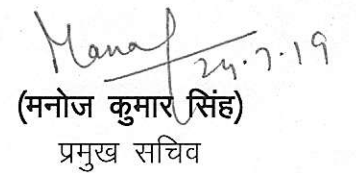 Manoj
24.7.19
(मनोज कुमार सिंह)
प्रमुख सचिव